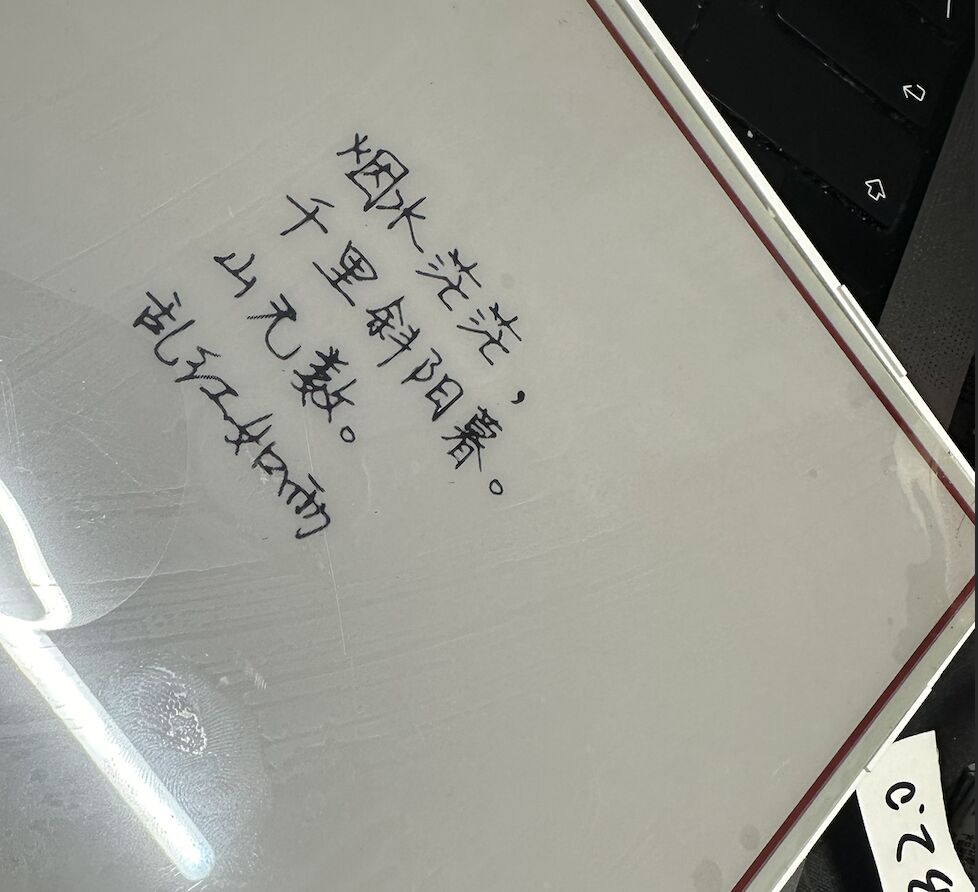 烟水茫茫，
千里斜阳暮。
山无数。
乱红如雨